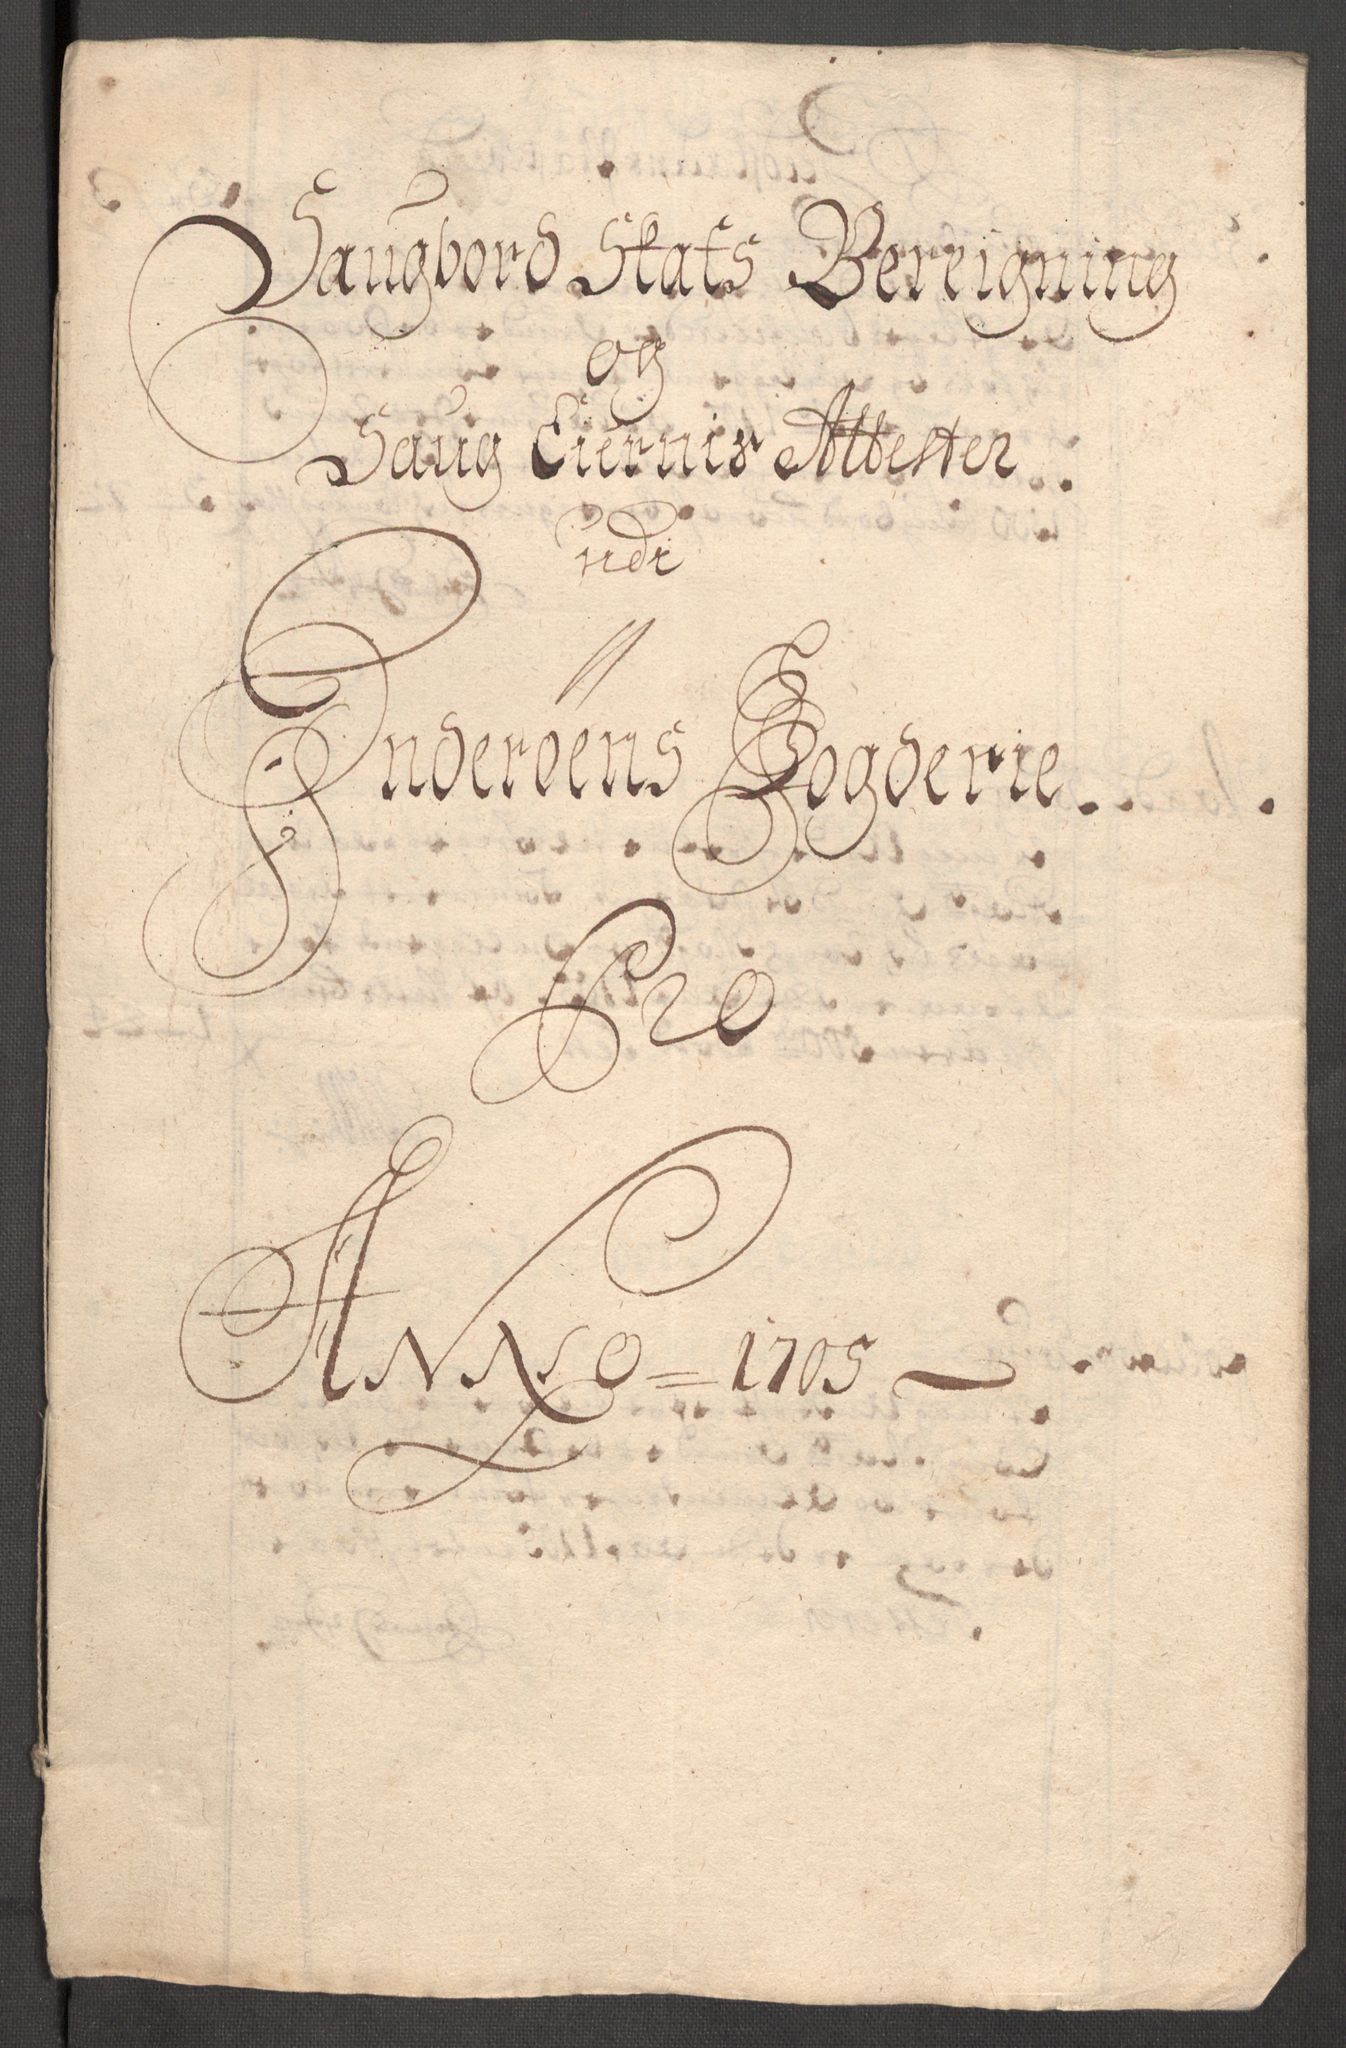 Saugbord Skats Bereigning
og
Saug Eiernis Attester
udi
Inderøens Fogderie.
Pro
ANNO = 1705